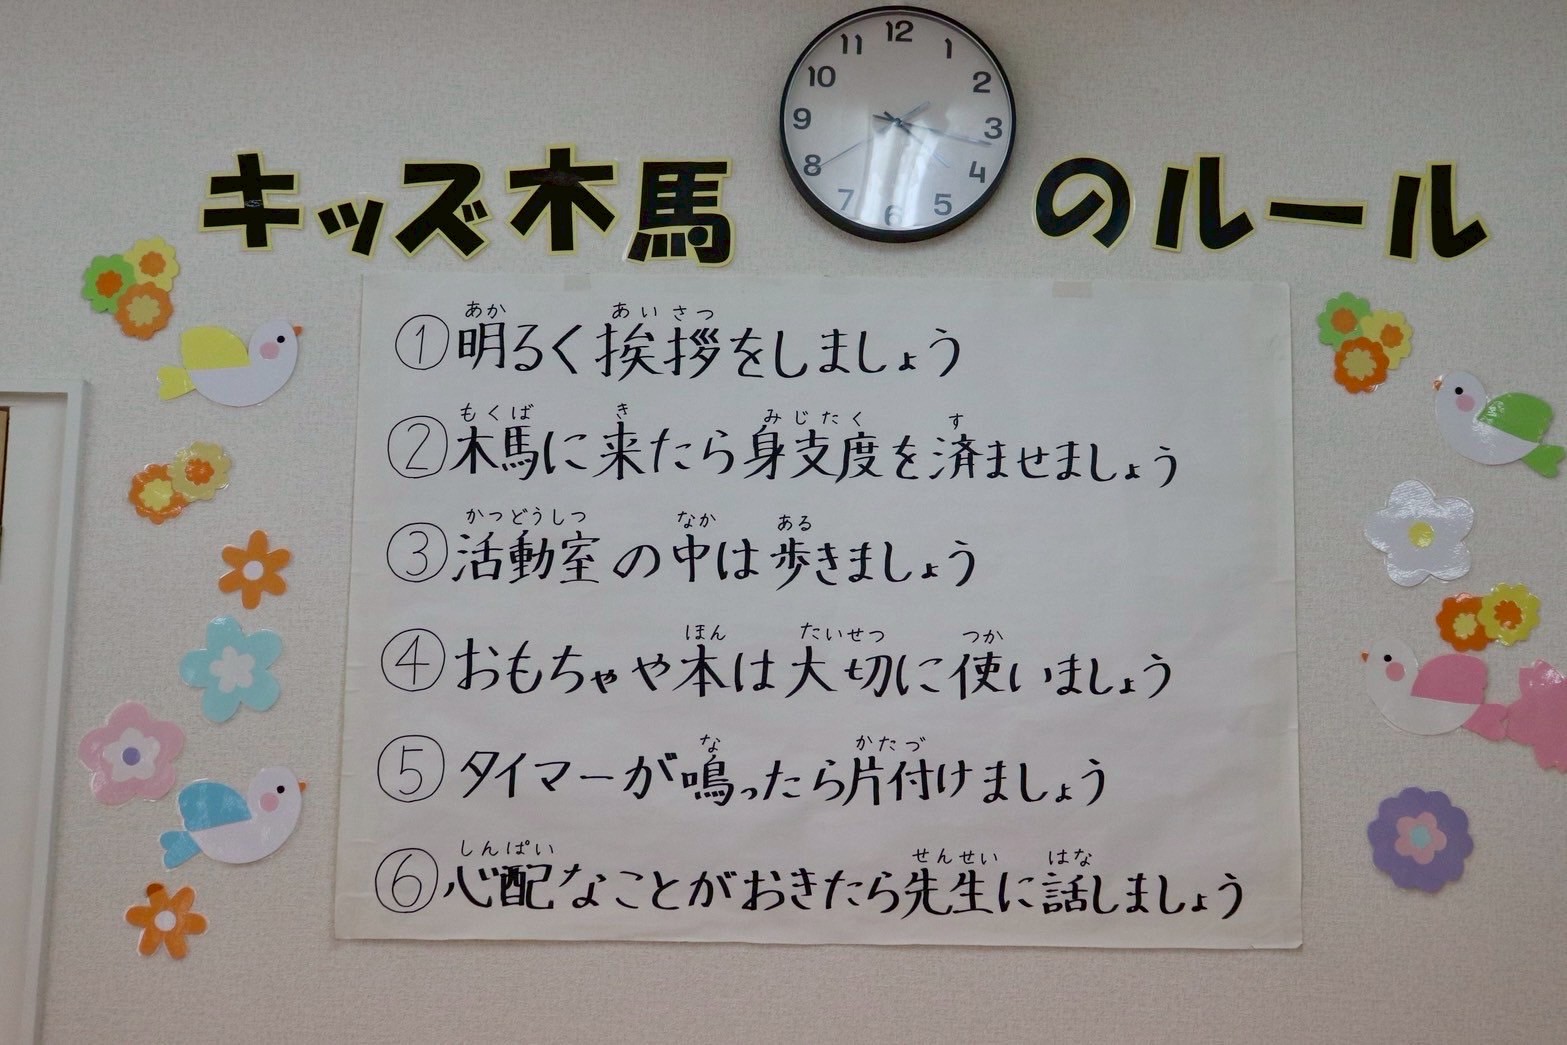 12
11 1
10 2
9 3
8 4
7 5
6
キッズ木馬のルール
あか あいさつ
①明るく挨拶をしましょう
もくば き みじたく す
②木馬に来たら身支度を済ませましょう
かつどうしつ なか ある
③活動室の中は歩きましょう
ほん たいせつ つか
④おもちゃや本は大切に使いましょう
な かたづ
⑤タイマーが鳴ったら片付けましょう
しんぱい せんせい はな
⑥心配なことがおきたら先生に話しましょう